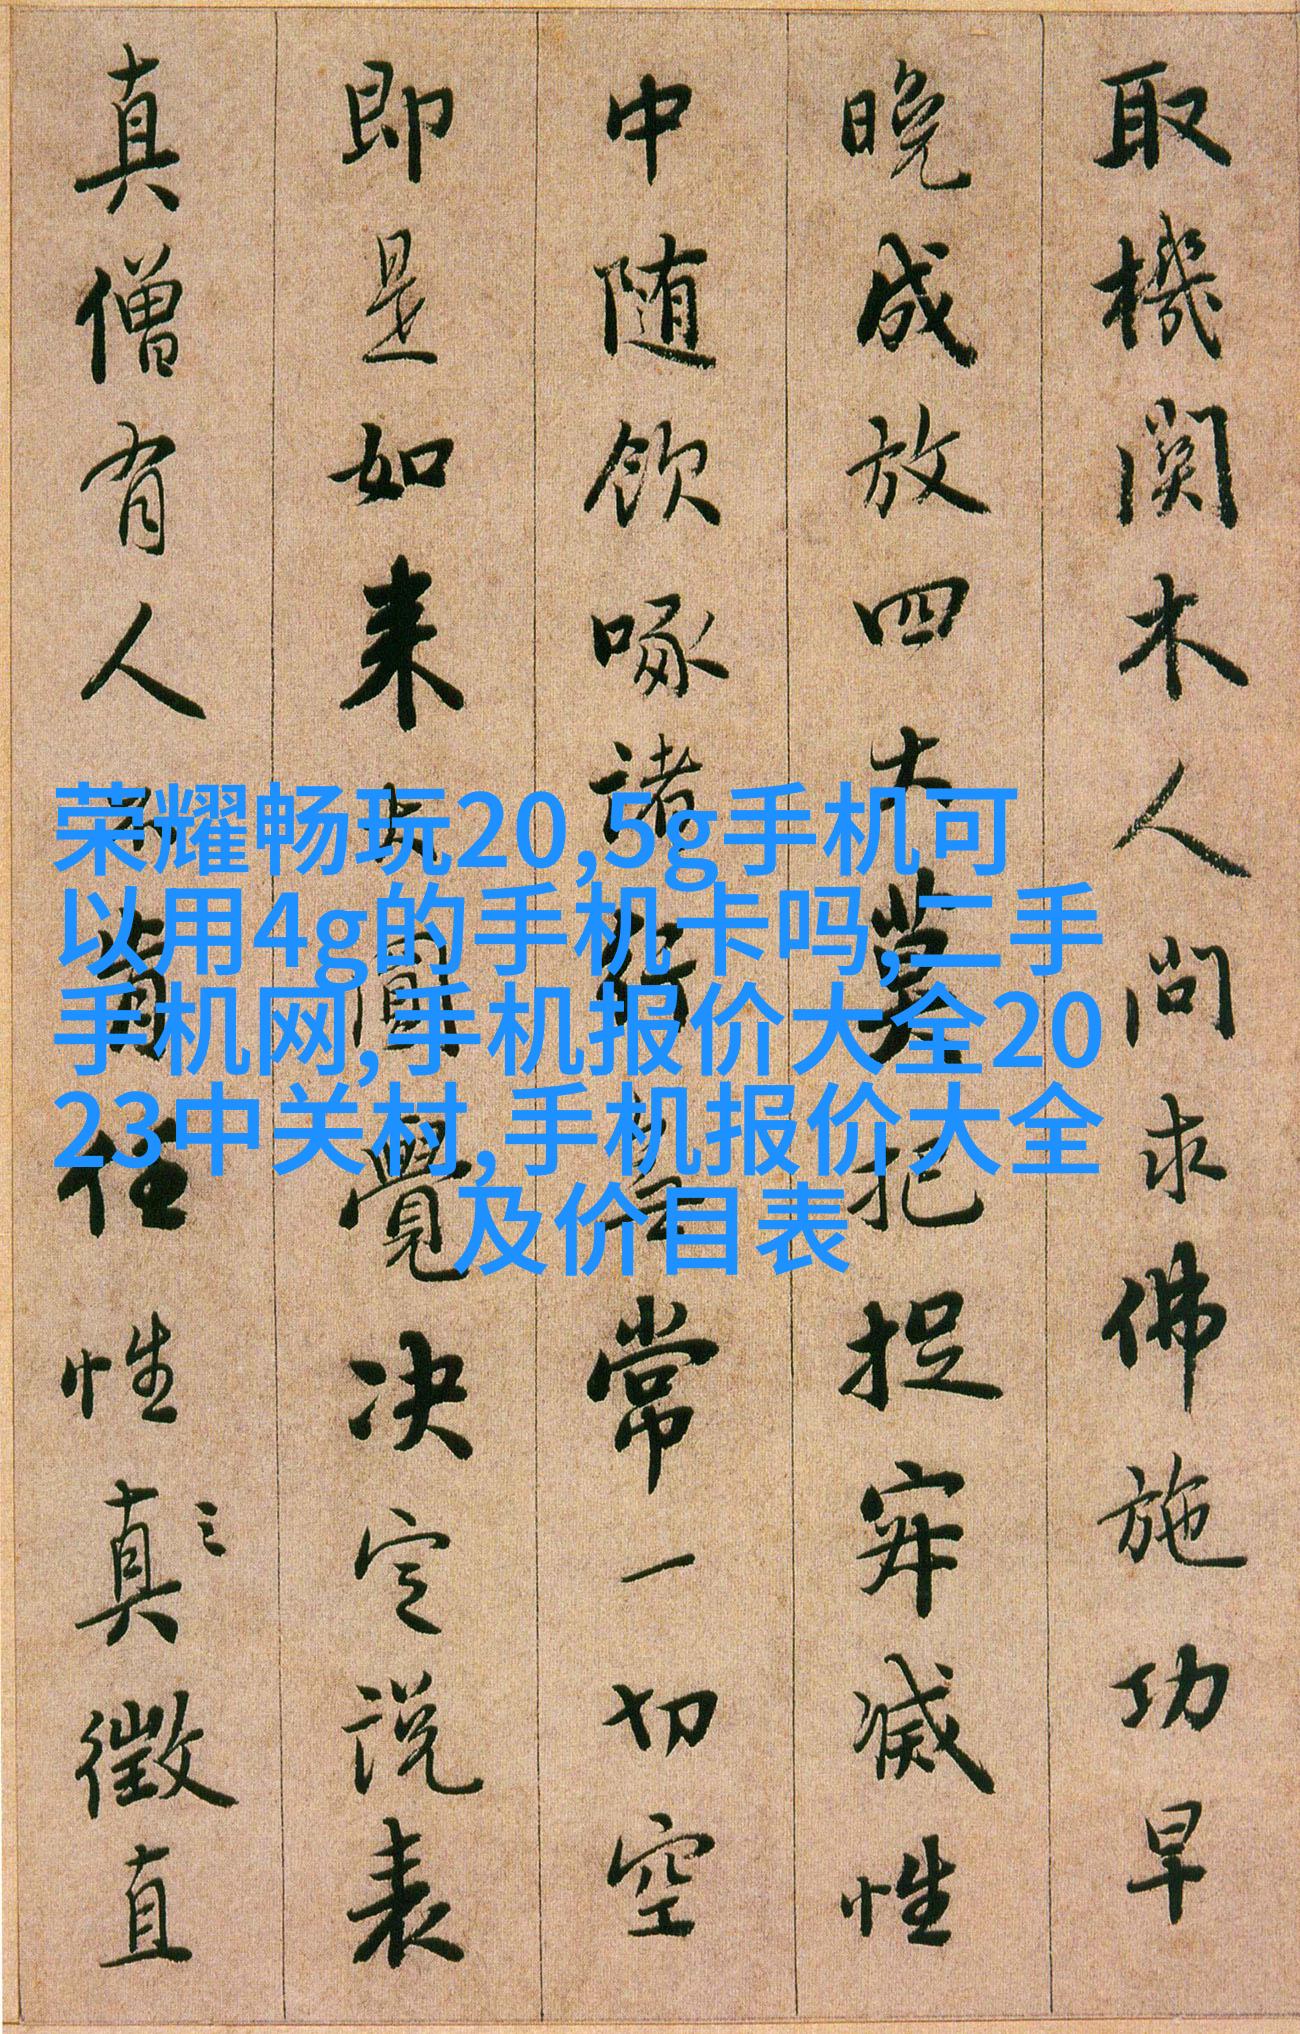 取機関木人問求佛施功早
晚成放四大莫把捉寂滅性
中随飲啄諸行無常一切空
即是如来大圓覺决定説表
真僧有人不肯任性真徵直
之
荣耀畅玩20,5g手机可
以用4g的手机卡吗,二手
手机网,手机报价大全20
23中关村,手机报价大全
及价目表